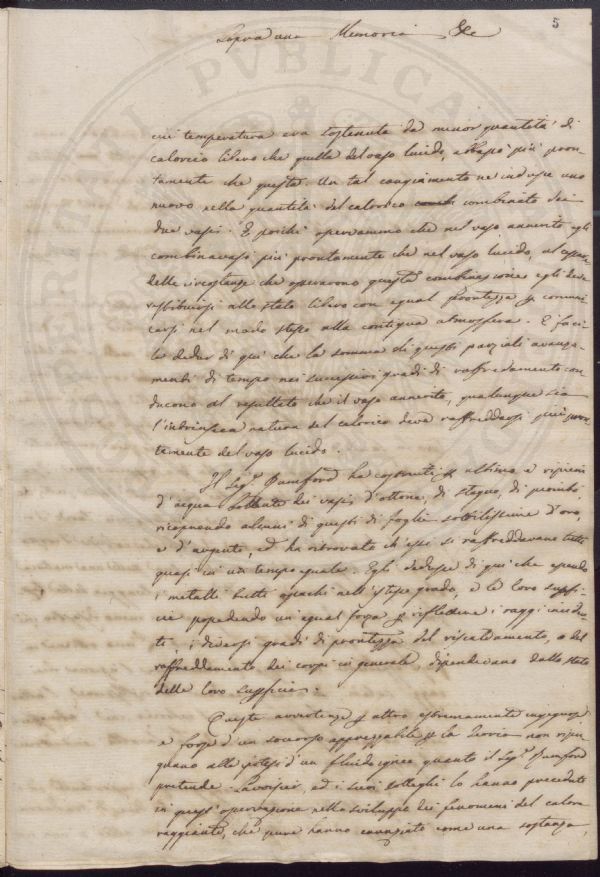 5
Sopra una Memoria &c
cui temperatura era sostenuta da minor quantità di
calorico libero che quella del vaso lucido, abbassò più pron-
tamente che questa. Un tal cangiamento ne indusse uno
nuovo nella quantità del calorico combinato dei
due vasi. E poichè osservammo che nel vaso annerito egli
combinavasi più prontamente che nel vaso lucido, al
delle circostanze che operarono questa combinazione egli deve
restituirsi allo stato libero con egual prontezza e communi
carsi nel modo stesso alla contigua atmosfera. È faci
le dedur di qui che la somma di questi parziali avanza-
menti di tempo nei successivi gradi di raffredamento con
ducono al resultato che il vaso annerito, qualunque sia
l'intrinseca natura del calorico deve raffreddarsi più pron
temente del vaso lucido.
Il Sigr. Rumford ha costruiti e ripieni
d'acqua bollente dei vasi d'ottone, di stagno, di piombo,
ricoprendo alcuni di questi di foglie sottilissime d'oro,
e d'argento, ed ha ritrovato ch'essi si raffreddavano tutti
quasi in un tempo eguale. Egli dedusse di qui che essendo
i metalli tutti opachi nell'istesso grado, e le loro superfi-
cie possedendo un'egual forza p riflettere i raggi inciden-
ti, i diversi gradi di prontezza del riscaldamento, o del
raffreddamento dei corpi in generale, dipendevano dallo stato
delle loro superficie.
Queste avvertenze p altro estremamente ingegnose
e forse d'un soccorso apprezzabile p la Teoria non ripu
gnano alle potesi d'un fluido igneo quanto il Sigr. Rumford
pretende. Lavoisier, ed i suoi colleghi lo hanno preceduto
in quest'operazione nello sviluppo dei fenomeni del calore
raggiante, che pure hanno enunziato come una sostanza,